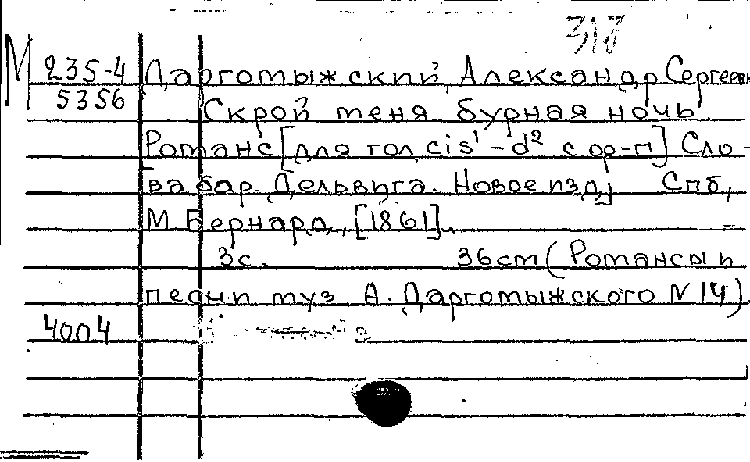 317
М 235-4 Даргомыжский, Александр Сергеевич
5356 Скрой меня бурная ночь
Романс [для гол. cis¹-d² с ф-п] Сло-
ва бар. Дельвига. Новое изд. Спб,
М. Бернард, [1861].
3с. 36cm (Романсы и
песни муз А. Даргомыжского N 14)
4004